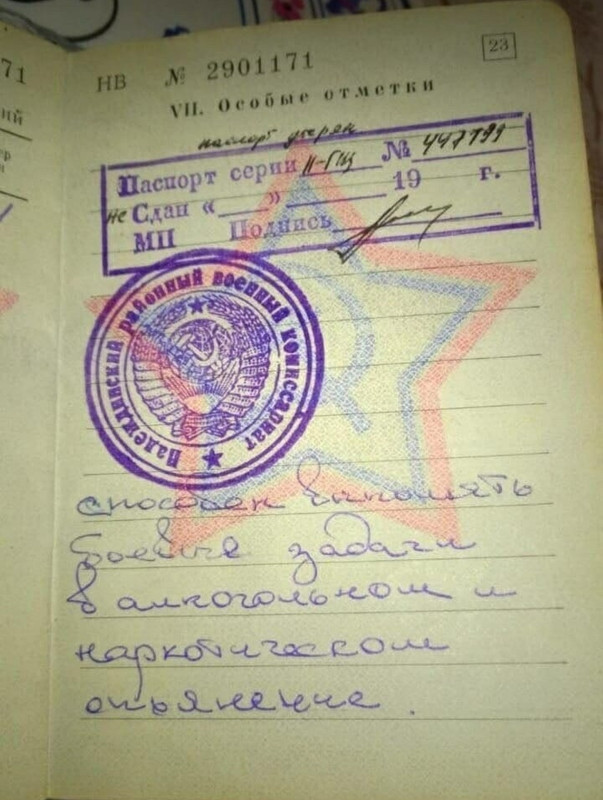 71
НВ № 2901171
23
VII. Особые отметки
паспорт утерян
Паспорт серии II-ГЩ № 447799
не Сдан « » 19 г.
МП Подпись
Надеждинский районный военный комиссариат
способен выполнять
боевые задачи
в алкогольном и
наркотическом
опьянение.